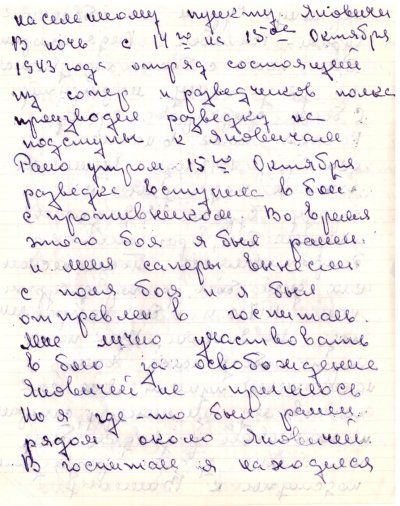 населенному пункту Яновичи
В ночь с 14го на 15ое Октября
1943 года отряд состоящей
из сапер и разведчиков полка
производил разведку на
подступы к Яновичам
Рано утром 15го Октября
разведка вступила в бой
с противником. Во время
этого боя я был ранен.
и меня саперы вынесли
с поля боя и я был
отправлен в госпиталь.
Мне лично участвовать
в бою за освобождение
Яновичей не пришлось
Но я где-то был ранен.
рядом около Яновичей
В госпитале я находился